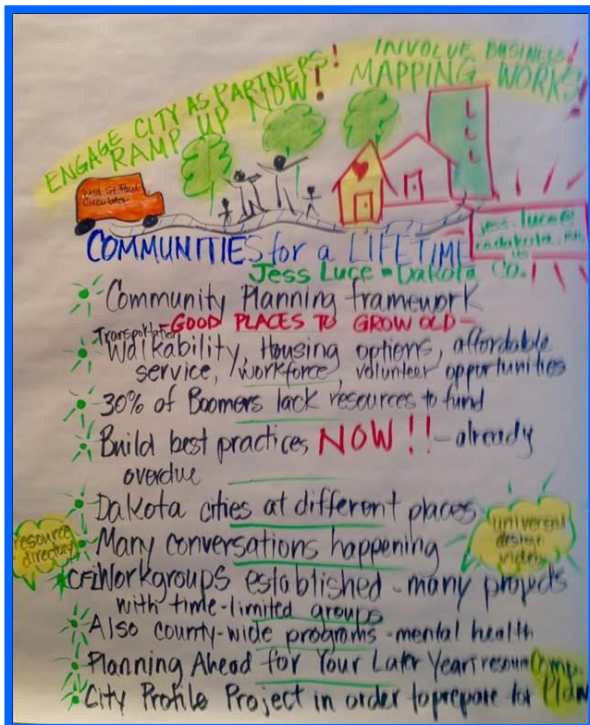 ENGAGE CITY AS PARTNERS!
RAMP UP NOW!
INVOLVE BUSINESS!
MAPPING WORKS!
West St. Paul
Circulator
COMMUNITIES for a LIFETIME
Jess Luce - Dakota Co.
jess.luce@
Community Planning framework
-GOOD PLACES TO GROW OLD-
Transportation
Walkability, Housing options, affordable
service, workforce, volunteer oppurtunities
30% of Boomers lack resources to fund
Build best practices NOW!! - already
overdue
Dakota cities at different places
universal
design
video
resource
directory
Many conversations happening
CFL Workgroups established - many projects
with time-limited groups
Also county-wide programs - mental health
Planning Ahead for Your Later Years
City Profile Project in order to prepare for Comp.
Plan